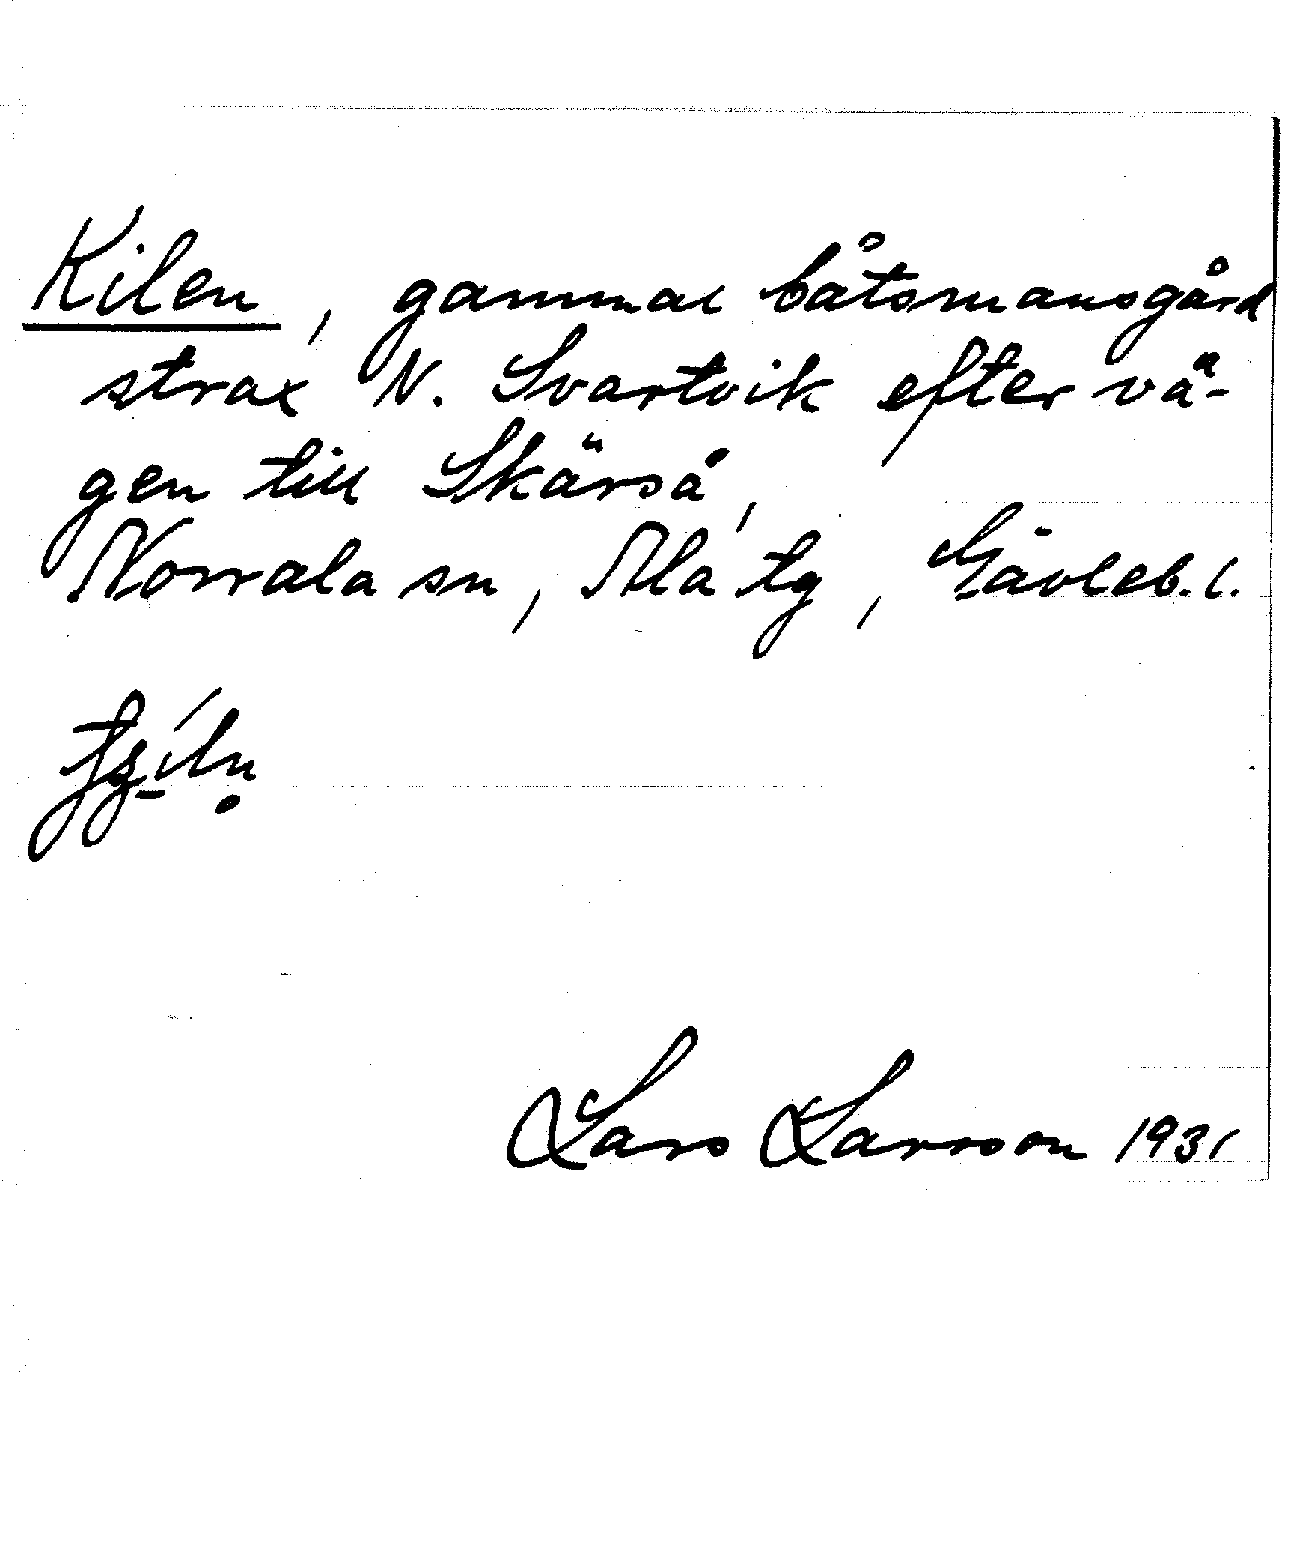 Kilen, gammal båtsmansgård
strax N. Svartvik efter vä-
gen till Skärså,
Norrala sn, Ala tg, Gävleb. l.
Lars Larsson 1931